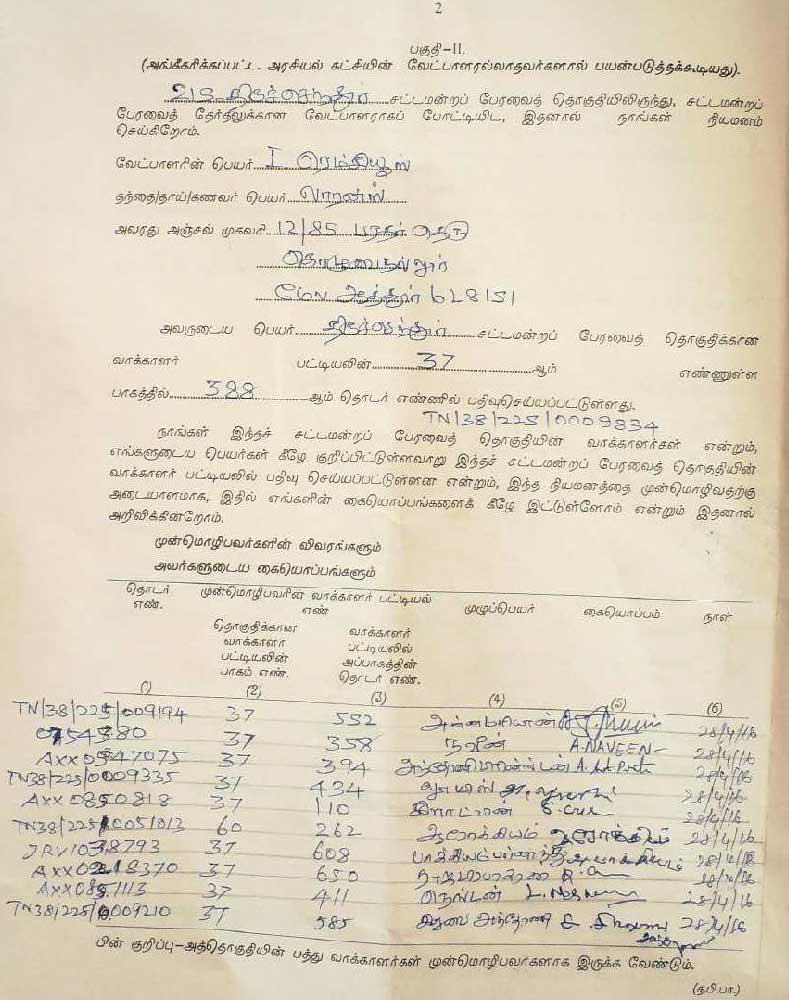 2
பகுதி-II.
(அங்கீகரிக்கப்பட்ட அரசியல் கட்சியின் வேட்பாளரல்லாதவர்களால் பயன்படுத்தக்கூடியது).
215 திருச்செந்தூர் சட்டமன்றப் பேரவைத் தொகுதியிலிருந்து, சட்டமன்றப்
பேரவைத் தேர்தலுக்கான வேட்பாளராகப் போட்டியிட, இதனால் நாங்கள் நியமனம்
செய்கிறோம்.
வேட்பாளரின் பெயர் I ரெமிஜியூஸ்
தந்தை/தாய்/கணவர் பெயர் லாரன்ஸ்
அவரது அஞ்சல் முகவரி 12/85 பரதர் தெரு
கொழுவைநல்லூர்
மேல ஆத்தூர் 628151
அவருடைய பெயர் திருச்செந்தூர் சட்டமன்றப் பேரவைத் தொகுதிக்கான
வாக்காளர் பட்டியலின் 37 ஆம் எண்ணுள்ள
பாகத்தில் 388 ஆம் தொடர் எண்ணில் பதிவுசெய்யப்பட்டுள்ளது.
TN/38/225/0009834
நாங்கள் இந்தச் சட்டமன்றப் பேரவைத் தொகுதியின் வாக்காளர்கள் என்றும்,
எங்களுடைய பெயர்கள் கீழே குறிப்பிட்டுள்ளவாறு இந்தச் சட்டமன்றப் பேரவைத் தொகுதியின்
வாக்காளர் பட்டியலில் பதிவு செய்யப்பட்டுள்ளன என்றும், இந்த நியமனத்தை முன்மொழிவதற்கு
அடையாளமாக, இதில் எங்களின் கையொப்பங்களைக் கீழே இட்டுள்ளோம் என்றும் இதனால்
அறிவிக்கின்றோம்.
முன்மொழிபவர்களின் விவரங்களும்
அவர்களுடைய கையொப்பங்களும்
தொடர் எண். முன்மொழிபவரின் வாக்காளர் பட்டியல் எண் முழுப்பெயர் கையொப்பம் நாள்
தொகுதிக்கான வாக்காளர் பட்டியலின் பாகம் எண். வாக்காளர் பட்டியலில் அப்பாகத்தின் தொடர் எண்.
(1) (2) (3) (4) (5) (6)
TN/38/225/009194 37 552 28/4/16
37 358 நவீன் A.NAVEEN 28/4/16
37 394 28/4/16
TN38/225/0009335 37 434 28/4/16
AXX0850818 37 110 28/4/16
TN38/225/0051013 60 262 ஆரோக்கியம் ஆரோக்கியம் 28/4/16
37 608 28/4/16
37 650
37 411 நெல்டன் 28/4/16
TN38/225/0009210 37 585 28/4/16
பின் குறிப்பு-அத்தொகுதியின் பத்து வாக்காளர்கள் முன்மொழிபவர்களாக இருக்க வேண்டும்.
(த.பி.பா.)